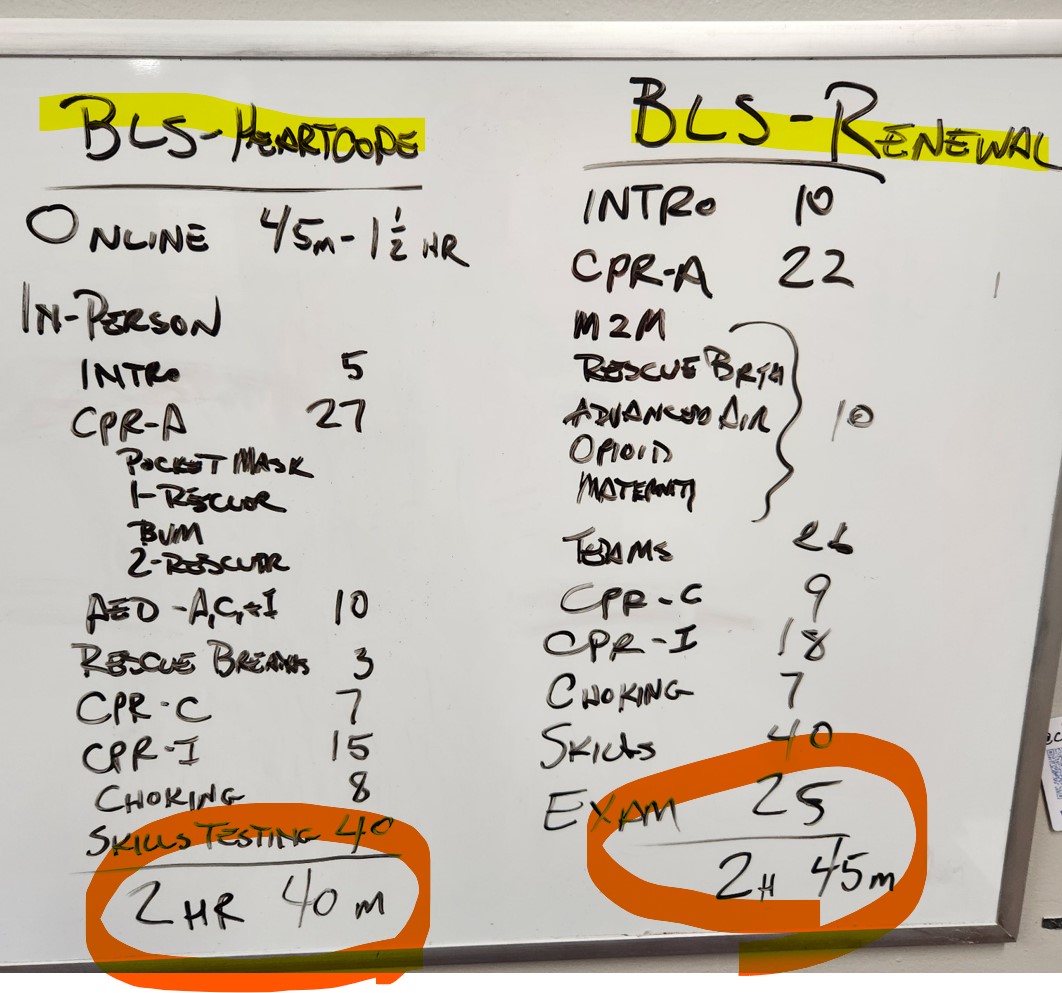 BLS-HEARTCODE
ONLINE 45m-1 1/2 HR
IN-PERSON
INTRO 5
CPR-A 27
POCKET MASK
1-RESCUOR
BVM
2-RESCUER
AED-A,C,+I 10
RESCUE BREATHS 3
CPR-C 7
CPR-I 15
CHOKING 8
SKILLS TESTING 40
2 HR 40 m
BLS-RENEWAL
INTRO 10
CPR-A 22
M2M
RESCUE BRTH
ADVANCED AIR 10
OPIOID
MATERNITY
TEAMS 26
CPR-C 9
CPR-I 18
CHOKING 7
SKILLS 40
EXAM 25
2H 45m